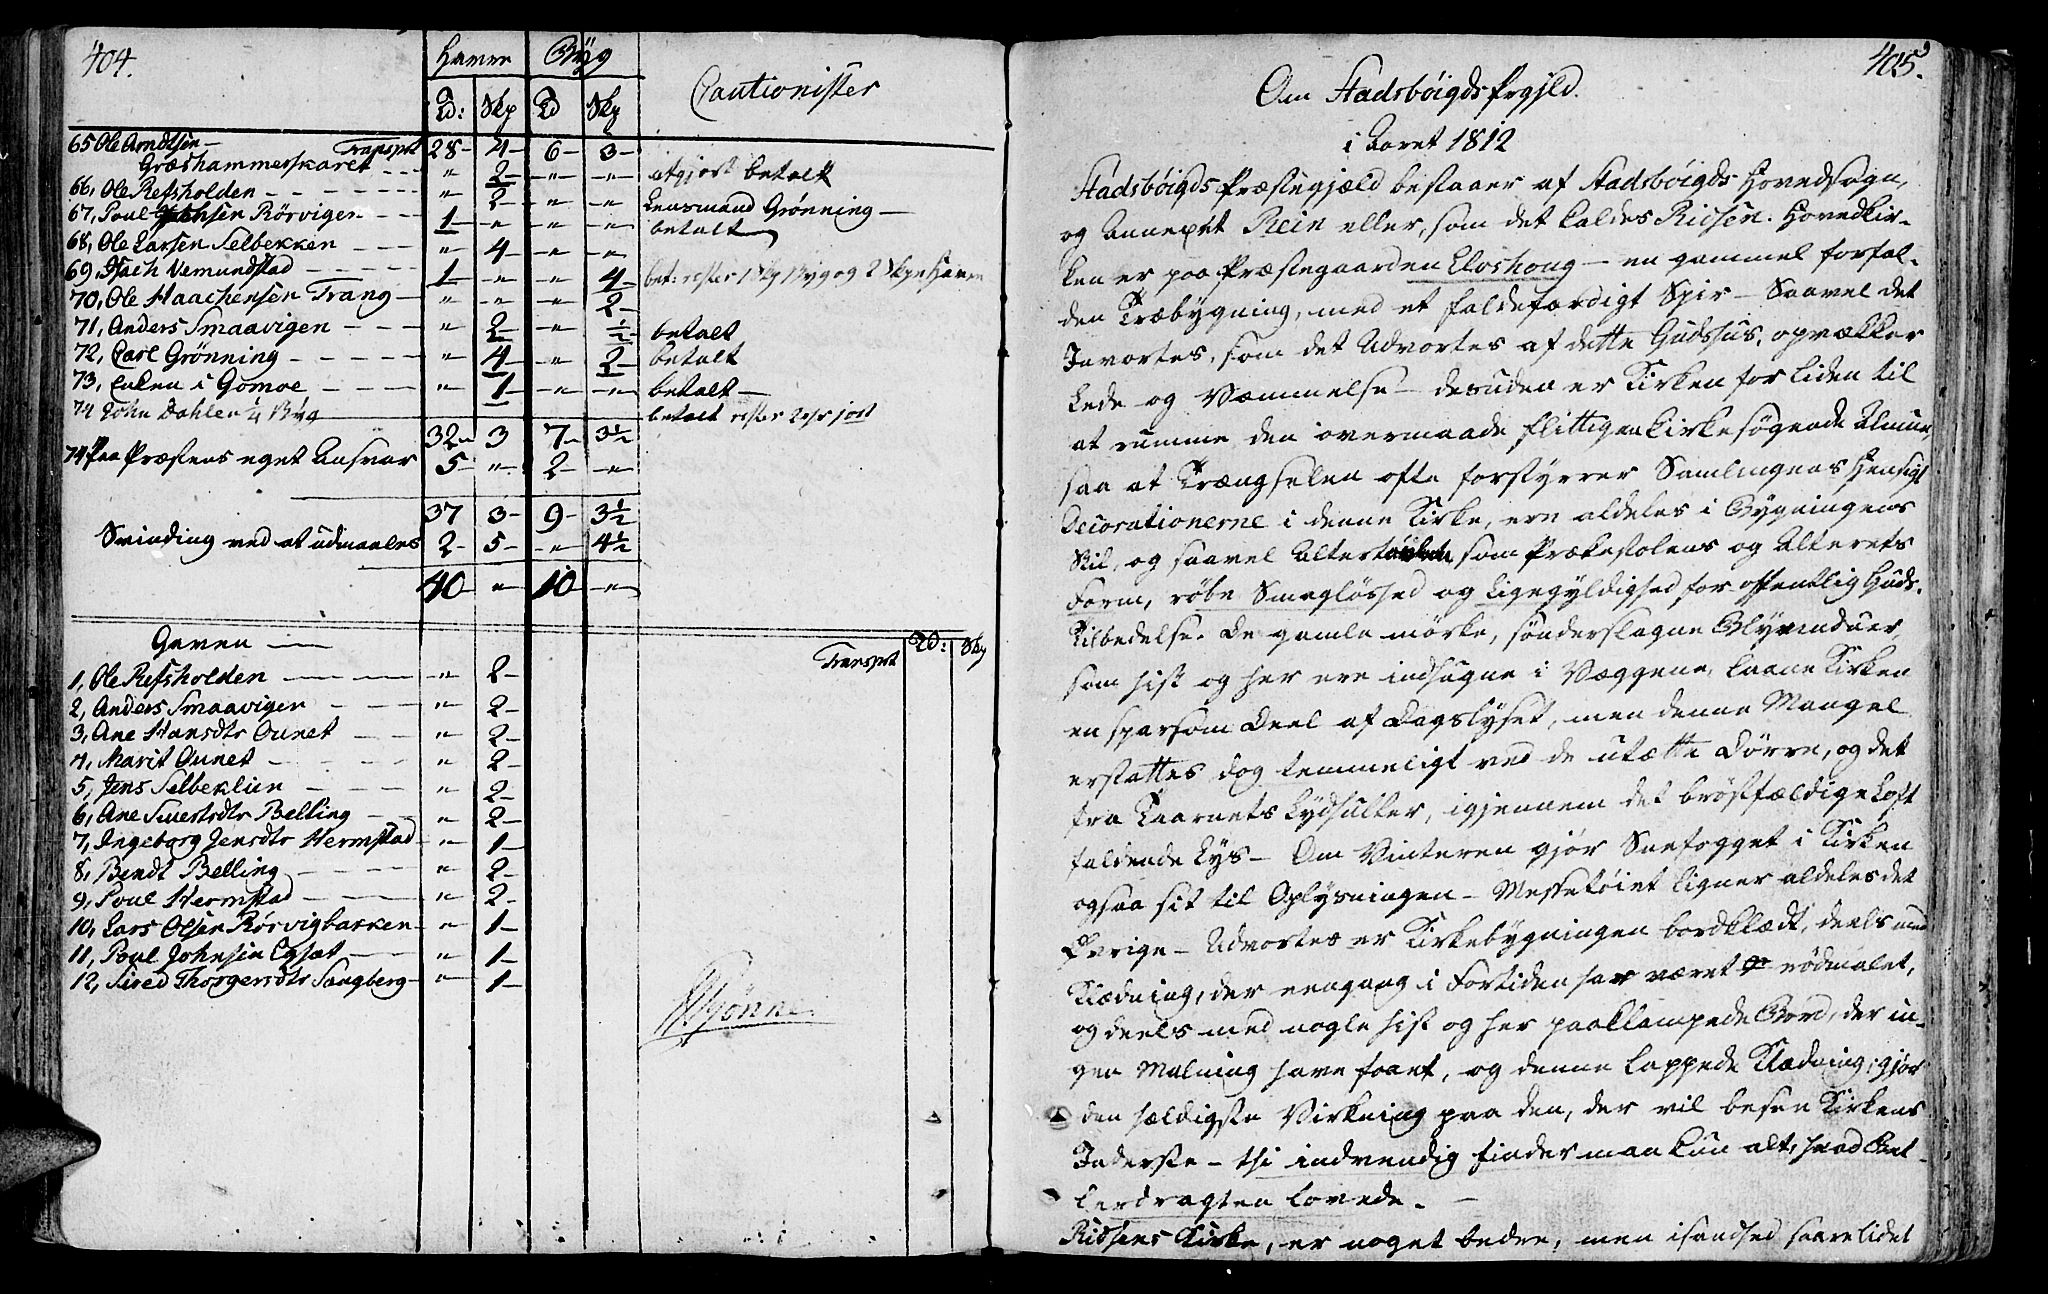 404.
Havre Byg
Cautionister
Td: Skp Td Skp
65 Ole Arndtsen — Transprt 28 - 4 - 6 - 3 -
Græshammerskaret - - - " 2 - " - " - afgjort betalt
66, Ole Refsholden - - - - - " 2 - " - " - Lensmand Grønning —
67, Poul Jensen Rörvigen - - - 1 - " - " - " - betalt
68, Ole Larsen Selbekken - - - " 4 - " - " -
69, Isach Nemundstad - - - - 1 - " - " - 4 - bet: rester 1 Skp Byg og 2 Skpr Havre
70, Ole Haachensen Trang — " - " - " - 2 -
71, Anders Smaavigen - - - " 2 - " - ½ betalt
72, Carl Grönning - - - - " 4 - " - 2 - betalt
73, Enken i Gomoe - - - - " 1 - " - " - betalt —
74 John Dahlen ¼ Byg betalt rester
32 - 3 7 - 3½
74 Paa Præstens eget Ansvar 5 - " - 2 - " -
37 3 - 9 - 3½
Svinding ved at udmaales 2 - 5 - " - 4½
40 - " - 10 - " -
Gaven —
Transprt Td: Skp
1, Ole Refsholden - - - - " - 2 -
2, Anders Smaavigen - - - " 2 -
3, Ane Hansdtr Ounet - - - " 2 -
4, Marit Ounet - - - - " 2 -
5, Jens Selbeklien - - - " 2 -
6, Ane Siuertsdtr Belling - - - " - 2 -
7, Ingeborg Jensdtr Hermstad - " - 1 -
8, Bendt Belling - - - - " - 2 -
9, Poul Hermstad - - - " - 2 -
10, Lars Olsen Rörvigbakken - " - 1 -
11, Poul Johnsen - - " - 1 -
12, Sired Thorgersdtr Sangberg - " - 1 -
Rönne.
405.
Om Stadsböigds Prgjld.
i Aaret 1812
Stadsböigds Præstegjæld bestaaer af Stadsböigds Hovedsogn,
og Annexet Rein eller, som det kaldes Ridsen. Hovedkir-
ken er paa Præstegaarden Eloshoug — en gammel forfal-
den Træbygning, med et faldefærdigt Spir — Saavel det
Invortes, som det Udvortes af dette Gudshus, opvækker
Lede og Væmmelse — desuden er Kirken for liden til
at rumme den overmaade flittigen Kirkesøgende Almue,
saa at Trængselen ofte forstyrrer Samlingens Hensigt
Decorationerne i denne Kirke, ere aldeles i Bygningens
Stil, og saavel som Prækestolens og Alterets
Form, røbe Smagløshed og Ligegyldighed for offentlig Guds-
tilbedelse. De gamle mörke, sönderslagne Blyvinduer,
som hist og her ere indsugne i Væggene, laane Kirken
en sparsom Deel af Dagslyset, men denne Mangel
erstattes dog temmeligt ved de utætte Dörre, og det
fra Taarnets Lydhuller, igjennem det bröstfældige Loft
faldende Lys — Om Vinteren gjör Snefogget i Kirken
ogsaa sit til Oplysningen — Messetöiet ligner aldeles det
Övrige — Udvortes er Kirkebygningen bordklædt, deels med
Klædning, der eengang i Fortiden har været rödmalet,
og deels med nogle hist og her paaklampede Bord, der in-
gen Malning have faaet, og denne lappede Klædning, gjör
den heldigste Virkning paa den, der vil besee Kirkens
Inderste — thi indvendig finder man kun alt, hvad Bet-
lerdragten lovede. —
Ridsens Kirke, er noget bedre, men isandhed saare lidet